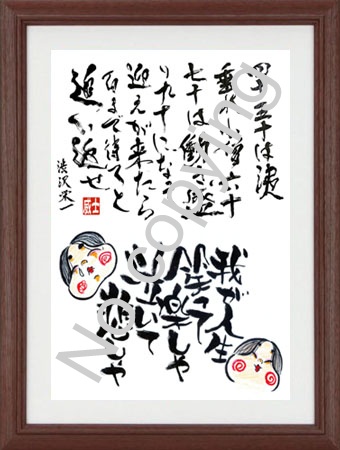 四十五十は洟
垂れ小僧六十
七十は働き盛
り九十になって
迎えが来たら
百まで待てと
追い返せ
渋沢栄一
我が人生
楽しや
悲しや
No copying